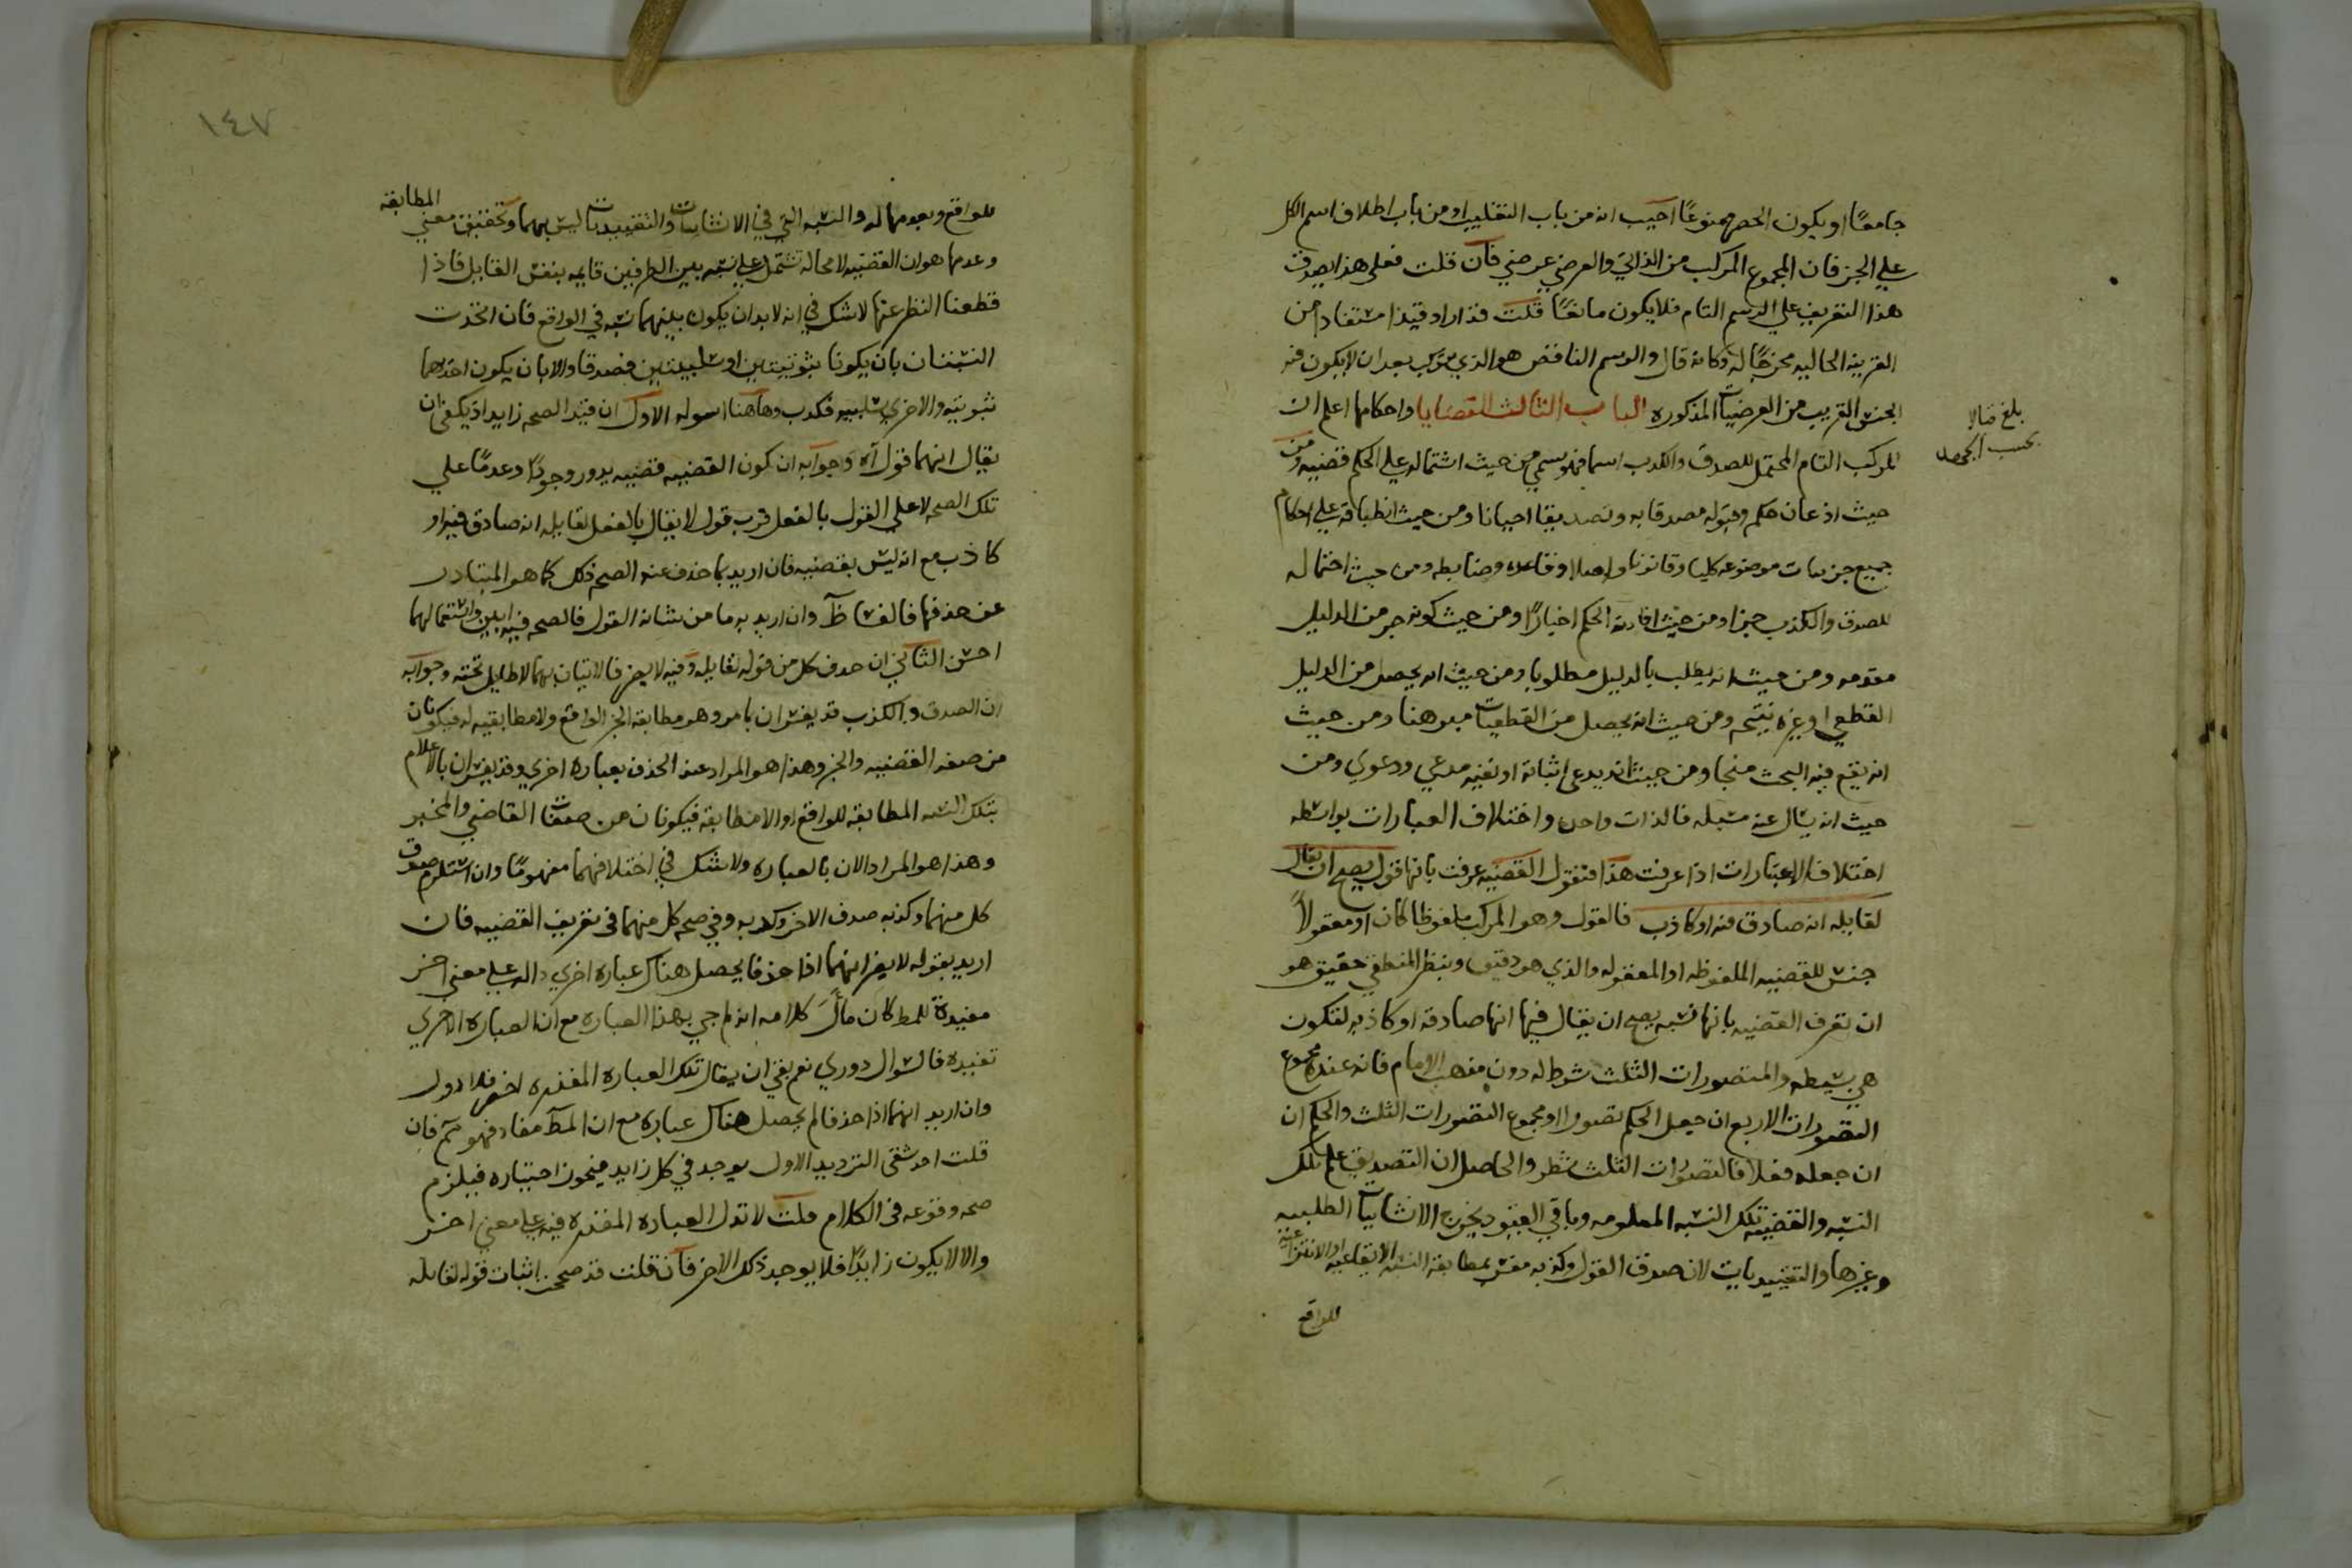 جامعًا او يكون الحصر ممنوعًا اجيب انه من باب التغليب او من باب اطلاق اسم الكل
علي الجز فان المجموع المركب من الذاتي والعرضي عرضي فان قلت فعلي هذا يصدق
هذا التعريف علي الرسم التام فلا يكون مانعًا قلت قد اراد قيدا مستفاد من
القرينه الحاليه مخرجًا له وكانه قال والرسم الناقص هو الذي يتركب بعد ان لا يكون فيه
الجنس القريب من العرضيات المذكوره الباب الثالث القضايا واحكامها اعلم ان
بلغ مقابلا
بحسب الجهد
المركب التام المحتمل للصدق والكذب اسما فهو يسمي من حيث اشتماله علي الحكم قضيه ومن
حيث اذعان حكم وقبوله مصدقا به وتصديقا احيانا ومن حيث انطباقه علي احكام
جميع جزييات موضوعه كليا وقانونا واصلا وقاعده وضابطه ومن حيث احتماله
للصدق والكذب خبرا ومن حيث افادته الحكم اخبارًا ومن حيث كونه جز من الدليل
مقدمه ومن حيث انه يطلب بالدليل مطلوبا ومن حيث انه يحصل من الدليل
القطعي او غيره نتيجه ومن حيث انه يحصل من القطعيات مبرهنا ومن حيث
انه يقع فيه البحث مبحثا ومن حيث انه يدعي اثباته او نفيه مدعي ودعوي ومن
حيث انه يسال عنه مسئله فالذات واحده واختلاف العبارات بواسطه
اختلاف الاعتبارات اذا عرفت هذا فنقول القضيه عرفت بانها قول يصح ان يقال
لقايله انه صادق فيه او كاذب فالقول وهو المركب ملفوظا كان او معقولاً
جنس للقضيه الملفوظه او المعقوله والذي هو دقيق وبنظر المنطقي حقيق هو
ان تعرف القضيه بانها نسبه يصح ان يقال فيها انها صادقه او كاذبه لتكون
هي بسيطه والتصورات الثلث شرط له دون مذهب الامام فانه عنده مجموع
التصورات الاربع ان جعل الحكم تصورا او مجموع التصورات الثلث والحكم ان
ان جعله فعلا فالتصورات الثلث شطر والحاصل ان التصديق علم تلك
النسبه والقضيه تلك النسبه المعلومه وباقي القيود يخرج الانشاييات الطلبيه
وغيرها والتقييديات لان صدق القول وكذبه مفسر بمطابقه النسبه الايقاعيه او الانتزاعيه
للواقع
١٤٧
للواقع وبعدمها له والنسبه التي في الانشاييات والتقييديات ليس بهما وتحقيق معني المطابقه
وعدمها هو ان القضيه لا محاله تشتمل علي نسبه بين الطرفين قايمه بنفس القايل فاذا
قطعنا النظر عنها لا شك في انه لا بد ان يكون بينهما نسبه في الواقع فان اتحدت
النسبتان بان يكونا ثبوتيتين او سلبيتين فصدق والا بان يكون احدهما
ثبوتيه والاخري سلبيه فكذب وهاهنا اسوله الاول ان قيد الصحه زايد اذ يكفي ان
يقال انهما قول آه وجوابه ان كون القضيه قضيه يدور وجودًا وعدمًا علي
تلك الصحه لا علي القول بالفعل فرب قول لا يقال بالفعل لقايله انه صادق فيه او
كاذب مع انه ليس بقضيه فان اريد بما حذف عنه الصحه ذلك كما هو المتبادر
عن حذفها فالفساد ظ وان اريد به ما من شانه القول فالصحه فيه ابين واستعمالهما
احسن الثاني ان حذف كل من قوله لقايله وفيه لا يضر فالاتيان بهما لا طايل تحته وجوابه
ان الصدق والكذب قد يفسران بامر وهو مطابقه الخبر الواقع ولا مطابقيه له فيكونان
من صفه القضيه والخبر وهذا هو المراد عند الحذف بعباره اخري وقد يفسران بالاعلام
بتلك النسبه المطابقه للواقع او اللامطابقه فيكونان من صفات القاضي والمخبر
وهذا هو المراد الان بالعباره ولا شك في اختلافهما مفهومًا وان استلزم صدق
كل منهما وكذبه صدق الاخر وكذبه وفي صحه كل منهما في تعريف القضيه فان
اريد بقوله لا يضر انهما اذا حذفا يحصل هناك عباره اخري داله علي معني اخر
مفيدة للمط كان مآل كلامه انه لم جي بهذا العباره مع ان العباره الاخري
تفيده فالسوال دوري نعم بقي ان يقال تلك العباره المفيده اخصر فلا اول
وان اريد انهما اذا حذفا لم يحصل هناك عباره مع ان المط مفاد فهو مم فان
قلت احد شقي الترديد الاول يوجد في كل زايد فيجوز اختياره فيلزم
صحه وقوعه في الكلام قلت لا تدل العباره المفيده فيه علي معني اخر
والا لا يكون زايدًا فلا يوجد ذلك الاخر فان قلت قد صححت اثبات قوله لقايله